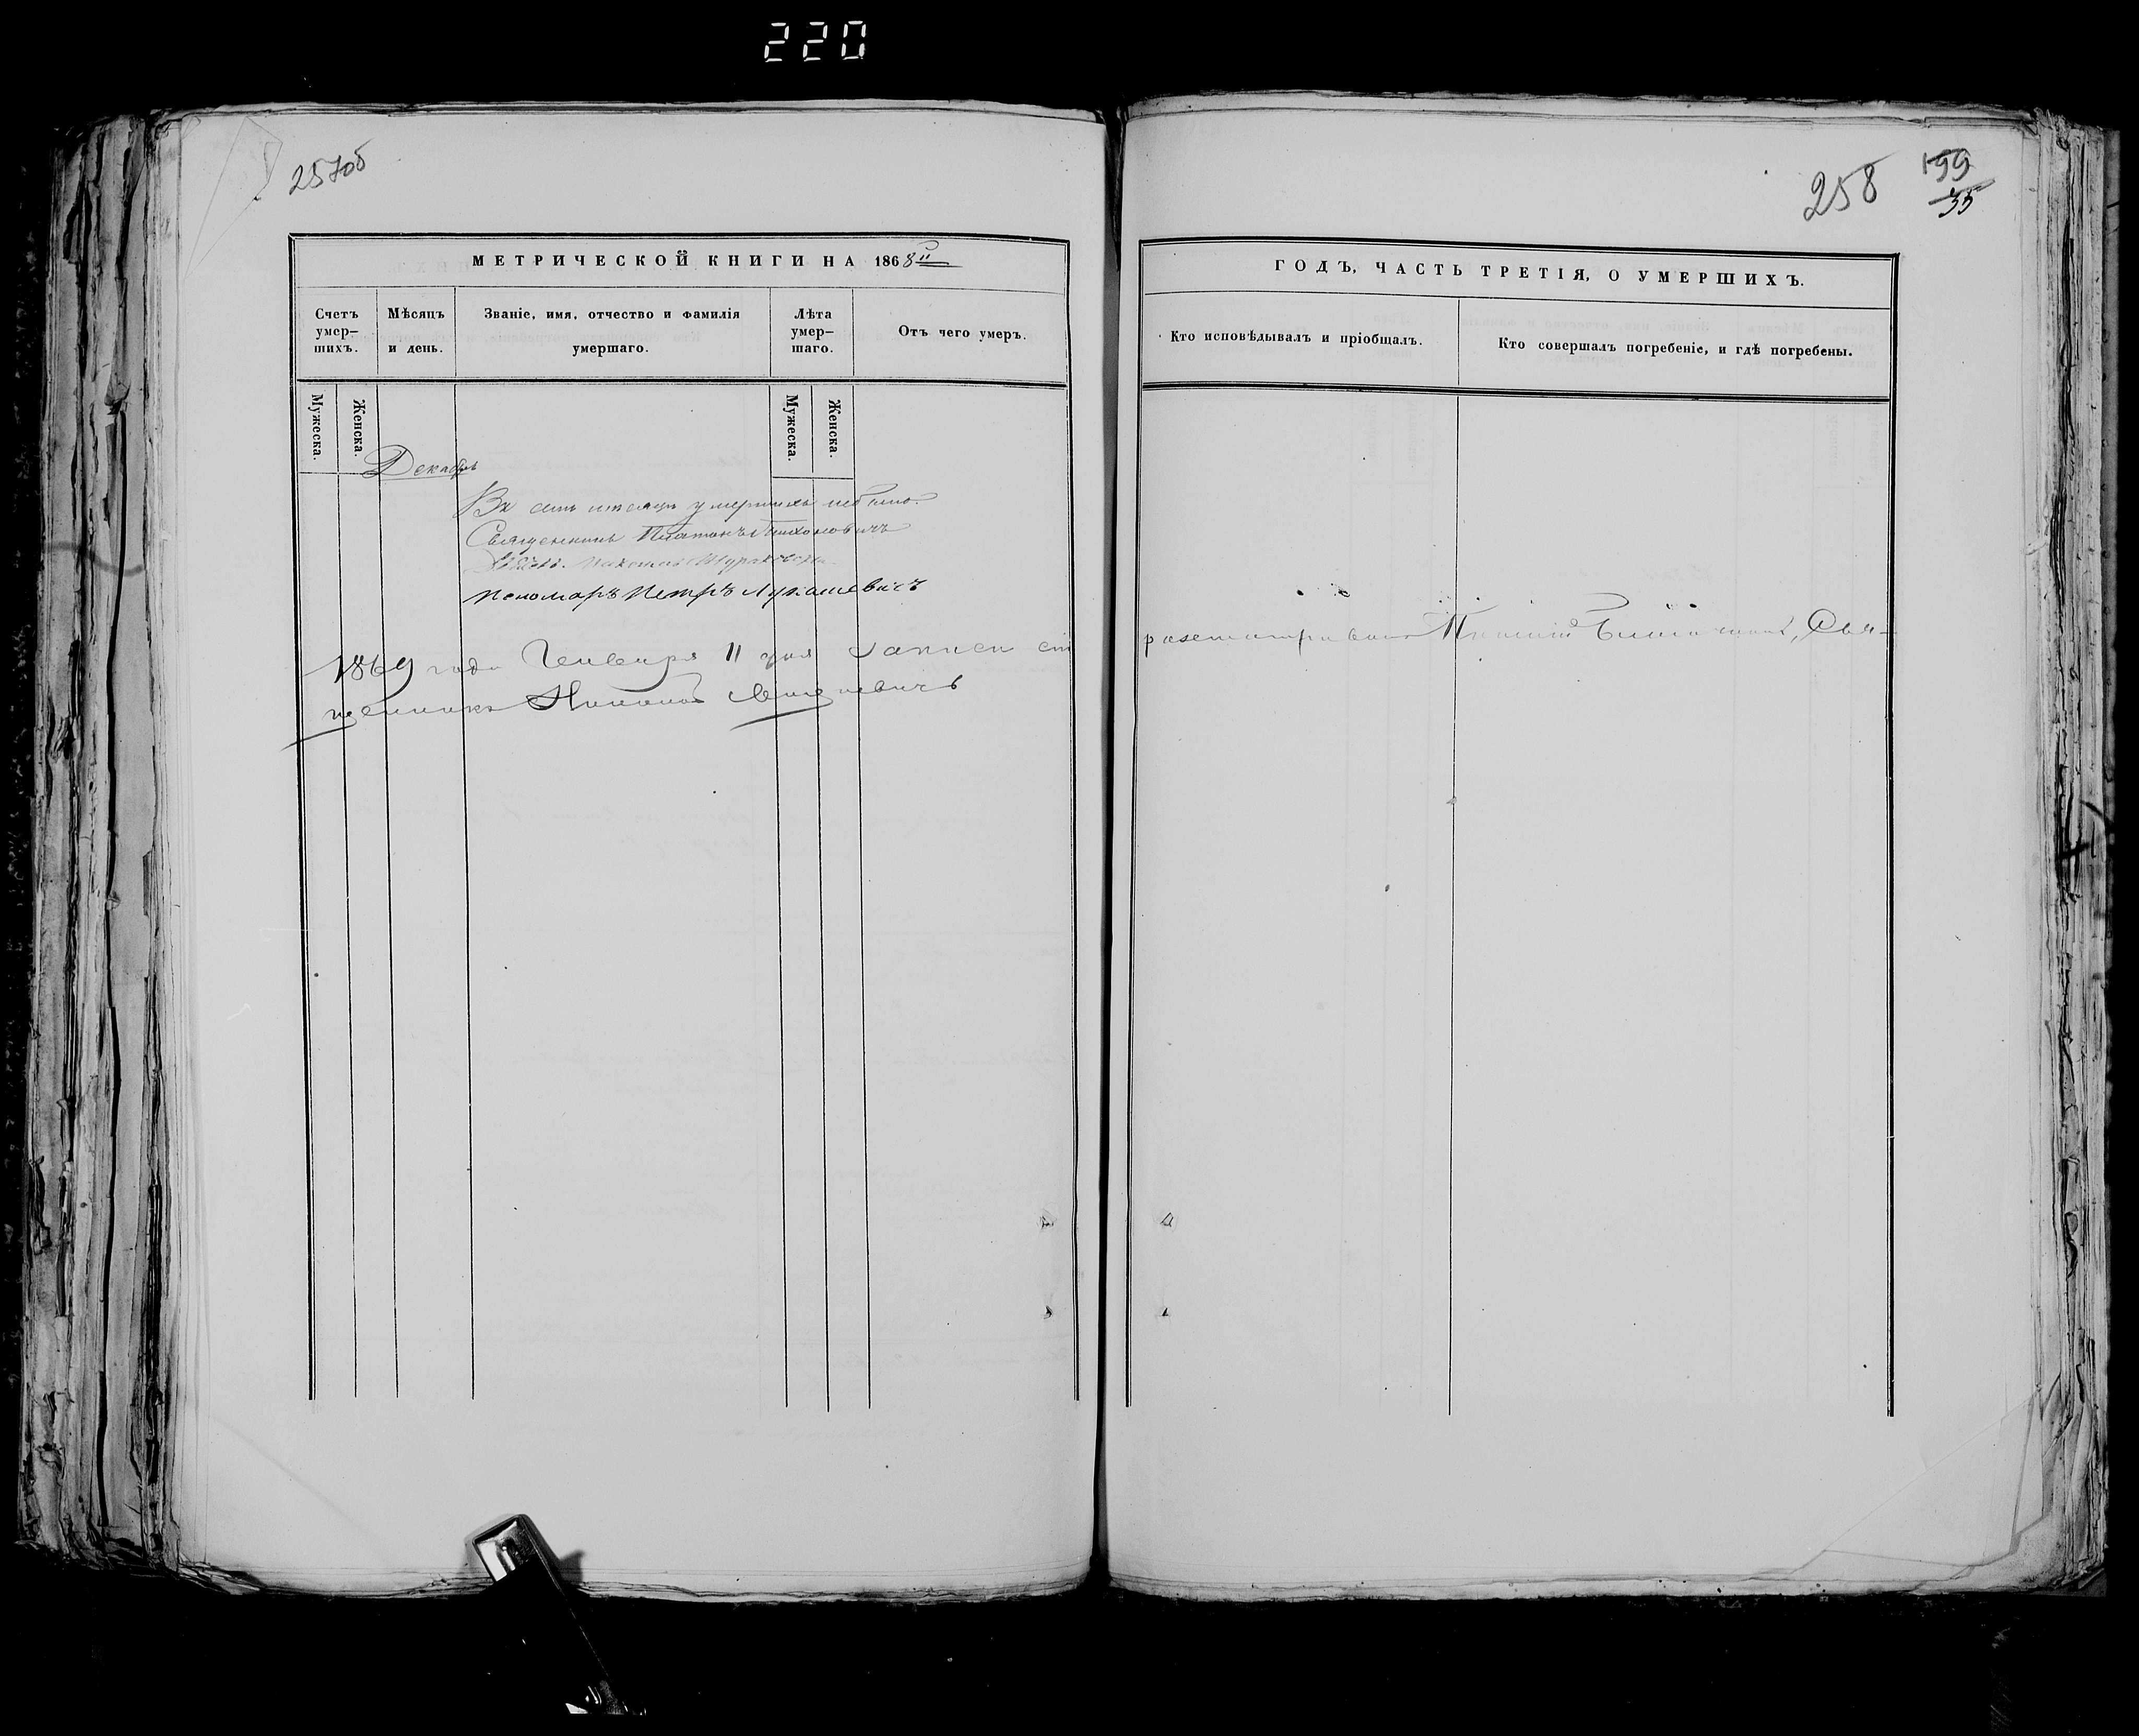 220
257об
258
199
35
МЕТРИЧЕСКОЙ КНИГИ НА 1868й
Счетъ умер–шихъ.
Мѣсяцъ и день.
Званіе, имя, отчество и фамилія умершаго.
Лѣта умер–шаго.
Отъ чего умеръ.
Мужеска.
Женска.
Мужеска.
Женска.
Декабрь
Въ семъ месяце умершихъ небыло.
Священникъ Платонъ Тихоновичъ
Пономаръ Петръ Лукашевичъ
1869 года Генваря 11 дня Записи сіи
щенникъ
ГОДЪ, ЧАСТЬ ТРЕТІЯ, О УМЕРШИХЪ.
Кто исповѣдывалъ и пріобщалъ.
Кто совершалъ погребеніе, и гдѣ погребены.
разсматривалъ Свя-